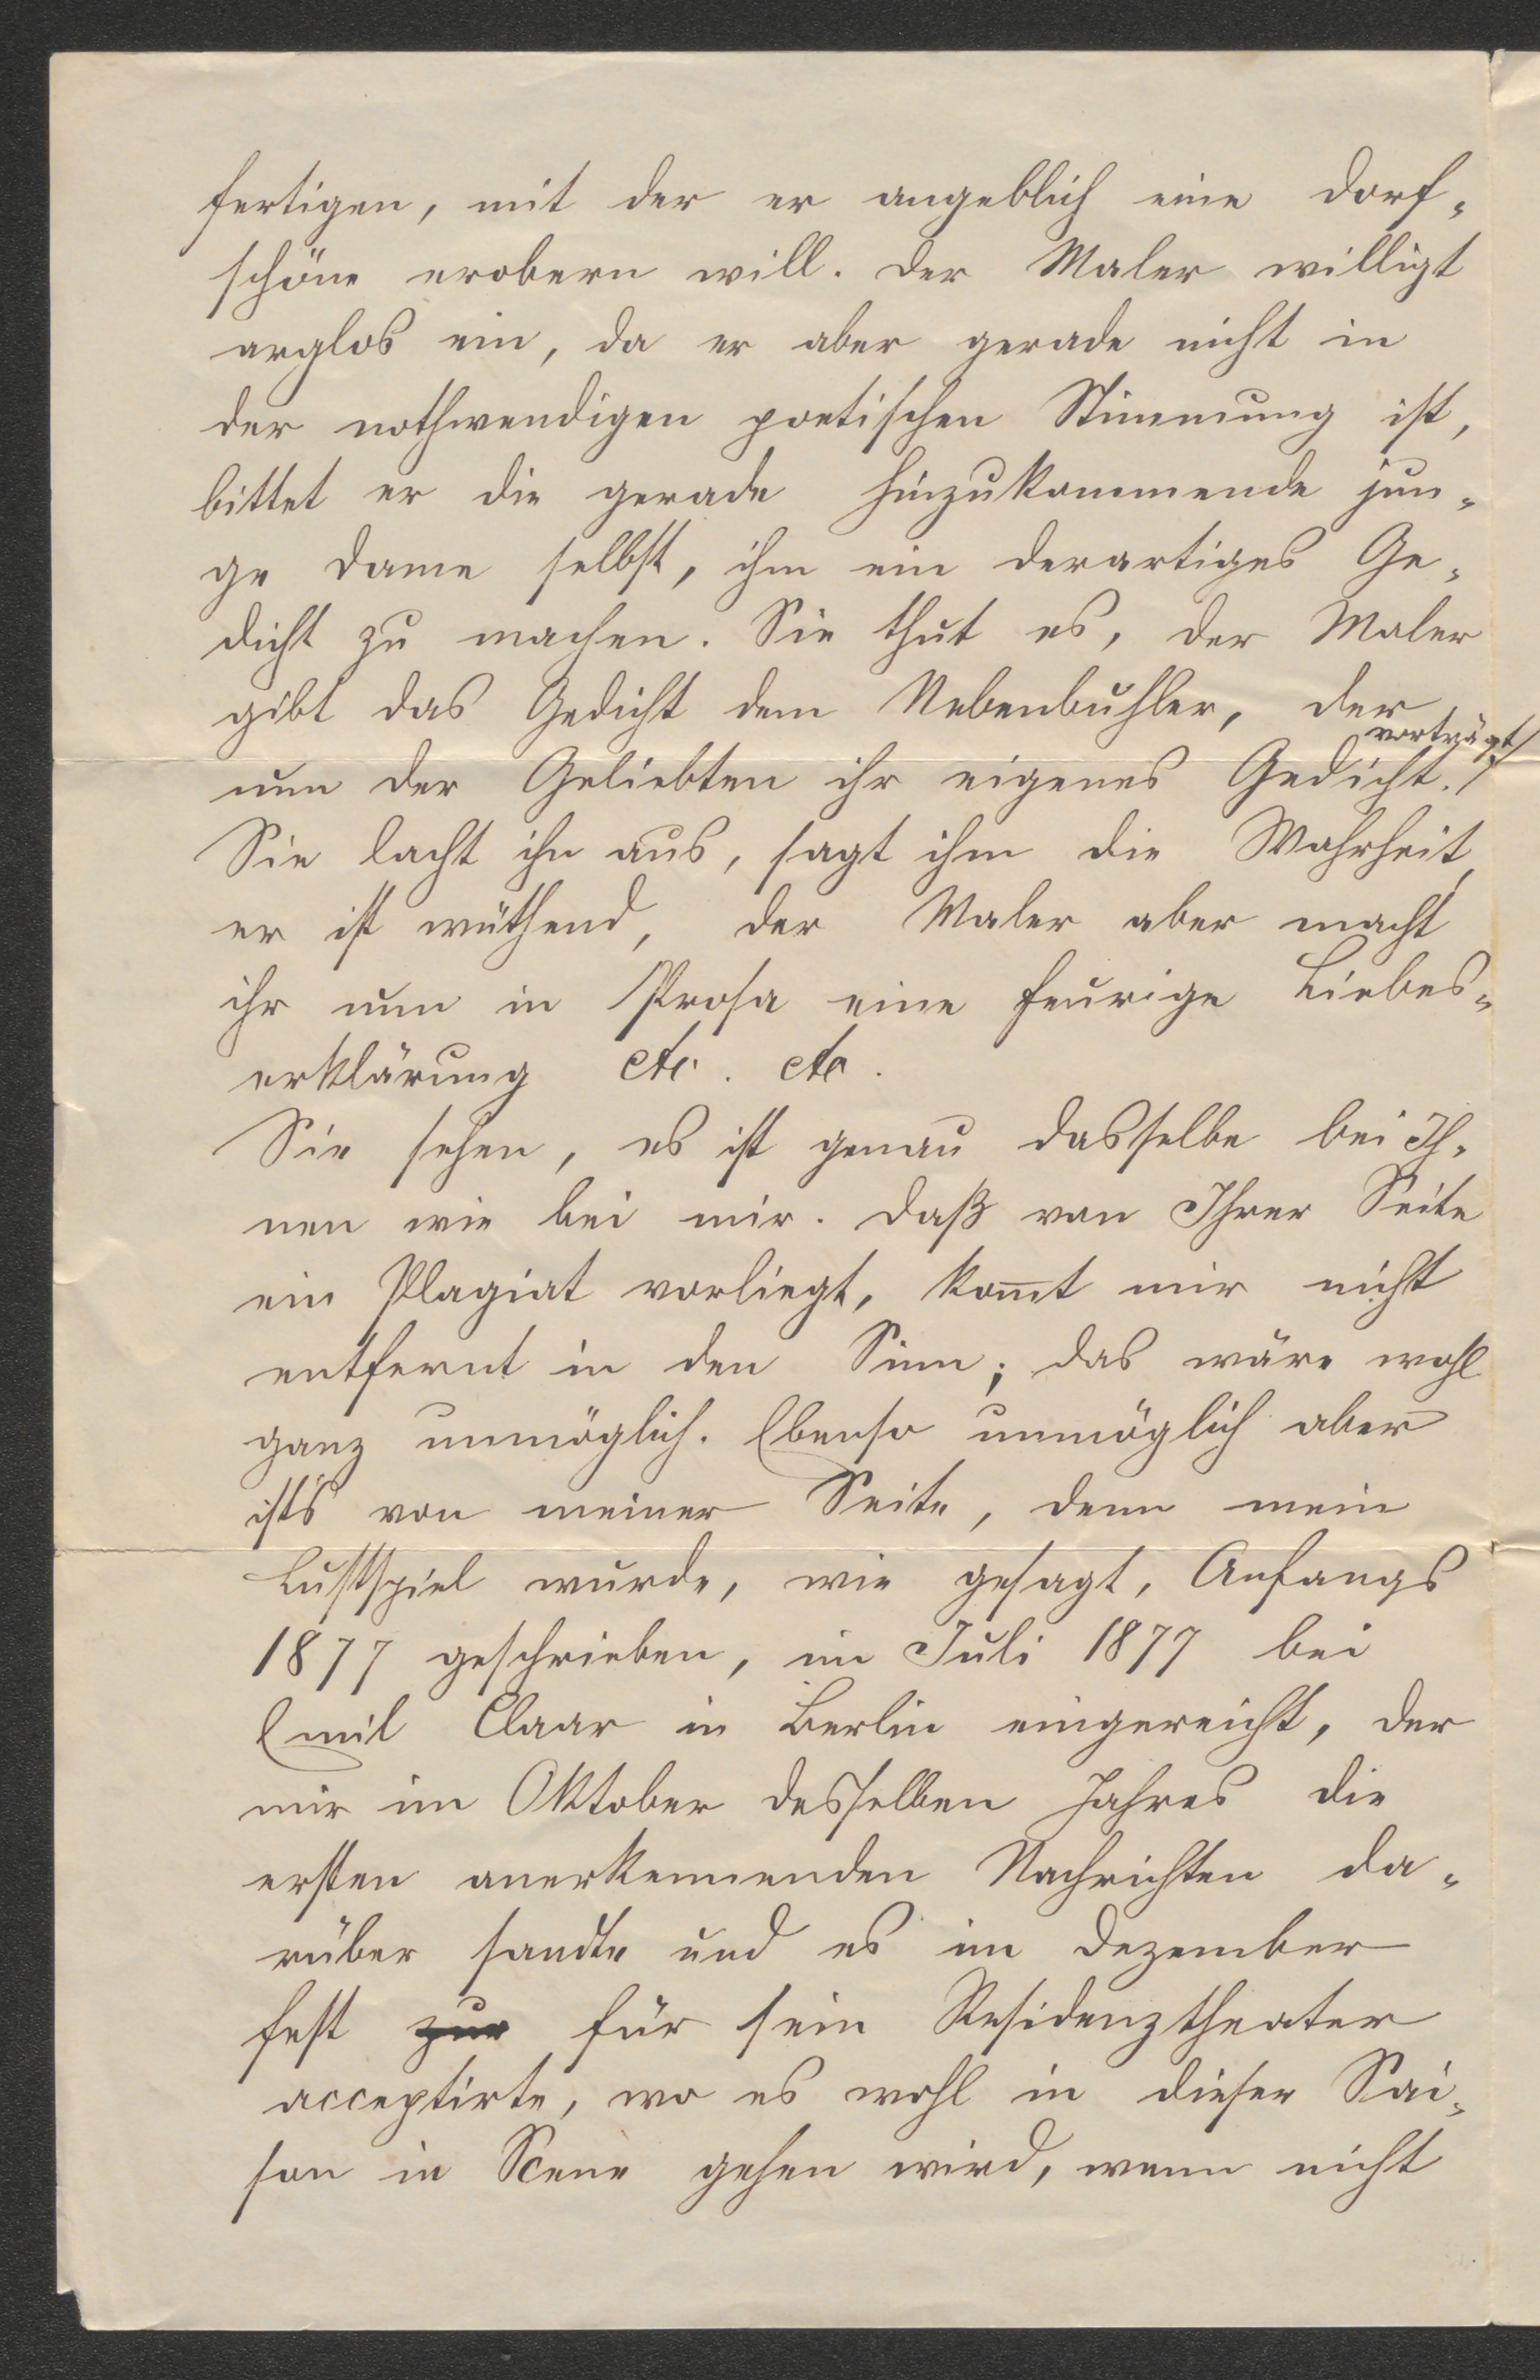 fertigen, mit der er angeblich eine Dorf-
schöne erobern will. Der Maler willigt
arglos ein, da er aber gerade nicht in
der nothwendigen poetischen Stimmung ist,
bittet er die gerade hinzukommende jun-
ge Dame selbst, ihm ein derartiges Ge-
dicht zu machen. Sie thut es, der Maler
gibt das Gedicht dem Nebenbuhler, der
vorträgt
nun der Geliebten ihr eigenes Gedicht.
Sie lacht ihn aus, sagt ihm die Wahrheit,
er ist wüthend, der Maler aber macht
ihr nun in Prosa eine feurige Liebes-
erklärung etc. etc.
Sie sehen, es ist genau dasselbe bei Ih-
nen wie bei mir. Daß von Ihrer Seite
ein Plagiat vorliegt, kom̅t mir nicht
entfernt in den Sinn; das wäre wohl
ganz unmöglich. Ebenso unmöglich aber
ist's von meiner Seite, denn mein
Lustspiel wurde, wie gesagt, Anfangs
1877 geschrieben, im Juli 1877 bei
Emil Claar in Berlin eingereicht, der
mir im Oktober desselben Jahres die
ersten anerkennenden Nachrichten da-
rüber sandte und es im Dezember
fest zur für sein Residenztheater
acceptirte, wo es wohl in dieser Sai-
son in Scene gehen wird, wenn nicht